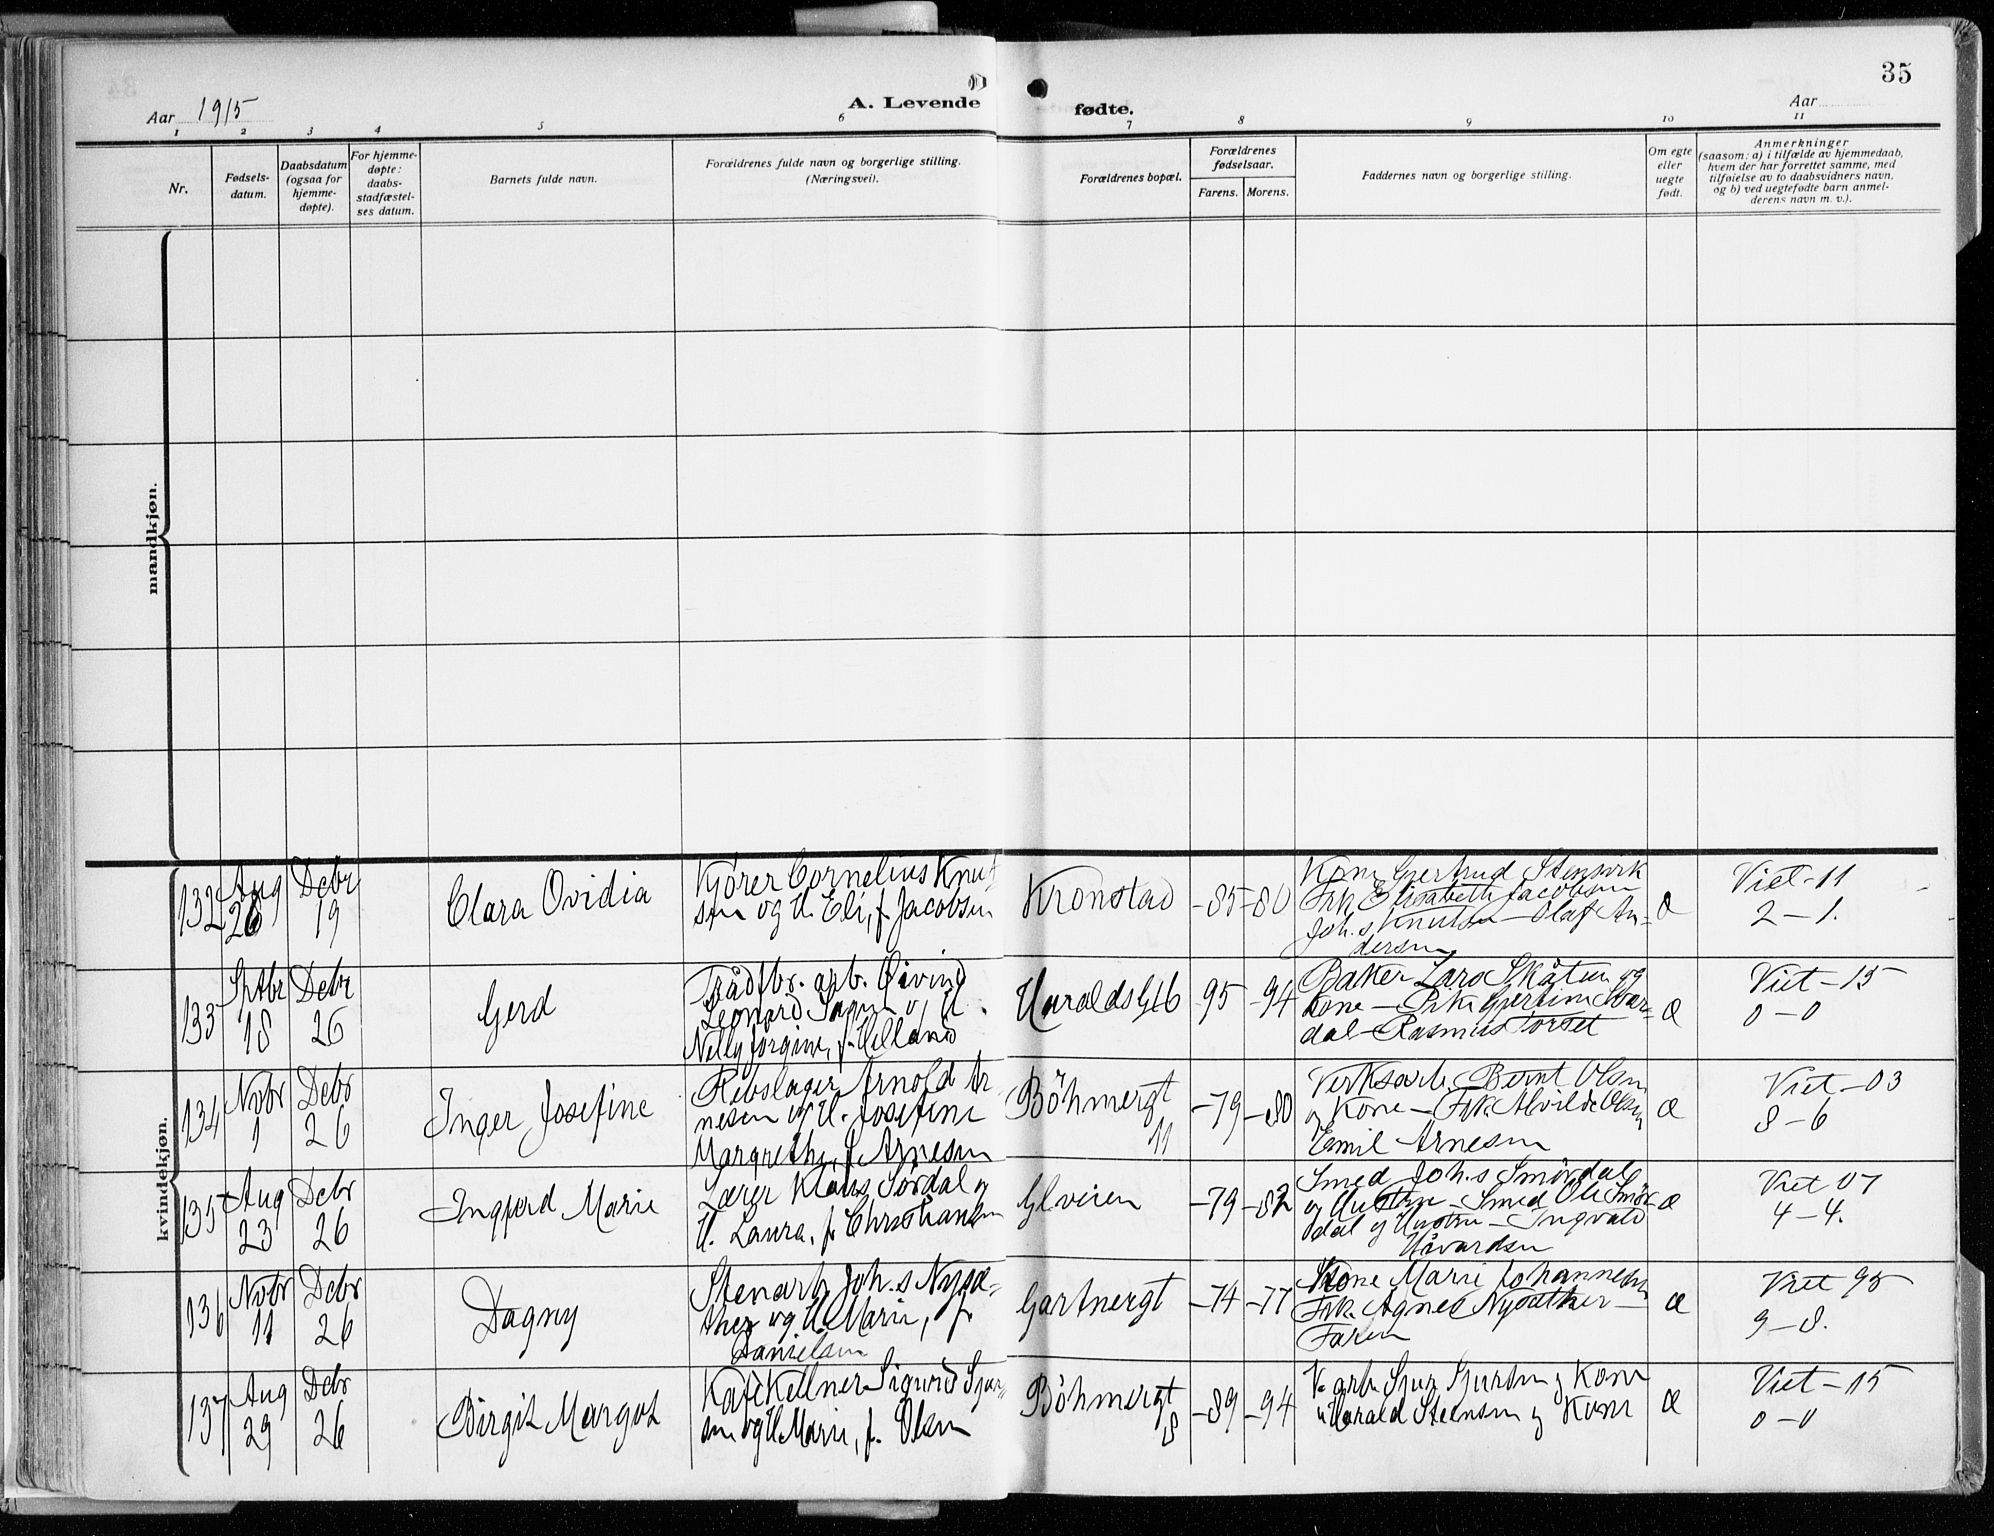 35
Aar 1915
A. Levende
fødte.
Aar
1 2 3 4 5 6 7 8 9 10 11
Nr.
Fødsels-
datum.
Daabsdatum
(ogsaa for
hjemme-
døpte).
For hjemme-
døpte:
daabs-
stadfæstel-
ses datum.
Barnets fulde navn.
Forældrenes fulde navn og borgerlige stilling.
(Næringsvei).
Forældrenes bopæl.
Forældrenes
fødselsaar.
Farens. Morens.
Faddernes navn og borgerlige stilling.
Om egte
eller
uegte
født.
Anmerkninger
(saasom: a) i tilfælde av hjemmedaab,
hvem der har forrettet samme, med
tilføielse av to daabsvidners navn,
og b) ved uegtefødte barn anmel-
derens navn m. v.).
mandkjøn.
kvindekjøn.
132
Aug
26
Debr
19
Clara Ovidia
Kjører Cornelius Knut
sen og H. Eli, f. Jacobsen
Kronstad
-85 -80
Kone Gjertrud Stensvik
Frk Elisabeth Jacobsen
Joh.s Knutsen - Olaf An-
dersen
Æ
Viet - 11
2 - 1.
133
Sptbr
18
Debr
26
Gerd
Øivind
Leonard
Nelly Jorgine, f. Helland
Haraldsgt 6
95 -94
Baker Lars Skåtun og
Kone - Frk
dal - Rasmus Torset
Æ
Viet - 15
0 - 0
134
Novbr
1
Debr
26
Inger Josefine
Rebslager Arnold Ar
nesen og H. Josefine
Margrethe, f. Arnesen
Böhmergt
11
-79 -80
Verksarb. Bernt Olsen
og Kone - Frk. Alvilde Olsen
Emil Arnesen
Æ
Viet - 03
8 - 6
135
Aug
23
Debr
26
Ingjerd Marie
Lærer Klaus Sørdal og
H. Laura, f. Christiansen
Glveien
-79 -82
Smed Joh.s Smørdal
og Hustru - Smed Ole Smør
dal og Hustru - Ingvald
Håvardsen
Æ
Viet 07
4 - 4.
136
Novbr
11
Debr
26
Dagny
Stenarb. Joh.s Nysæ-
ther og H. Marie, f.
Danielsen
Gartnergt
-74 -77
Kone Marie Johannesen
Frk. Agnes Nysæther -
Faren
Æ
Viet 95
9 - 8.
137
Aug
29
Debr
26
Birgit Margot
Kafékellner Sigurd Sjur-
sen og H Marie, f. Olsen
Böhmergt
-89 -94
V. arb. Sjur Sjursen og Kone
" Harald Steensen og Kone
Æ
Viet - 15
0 - 0